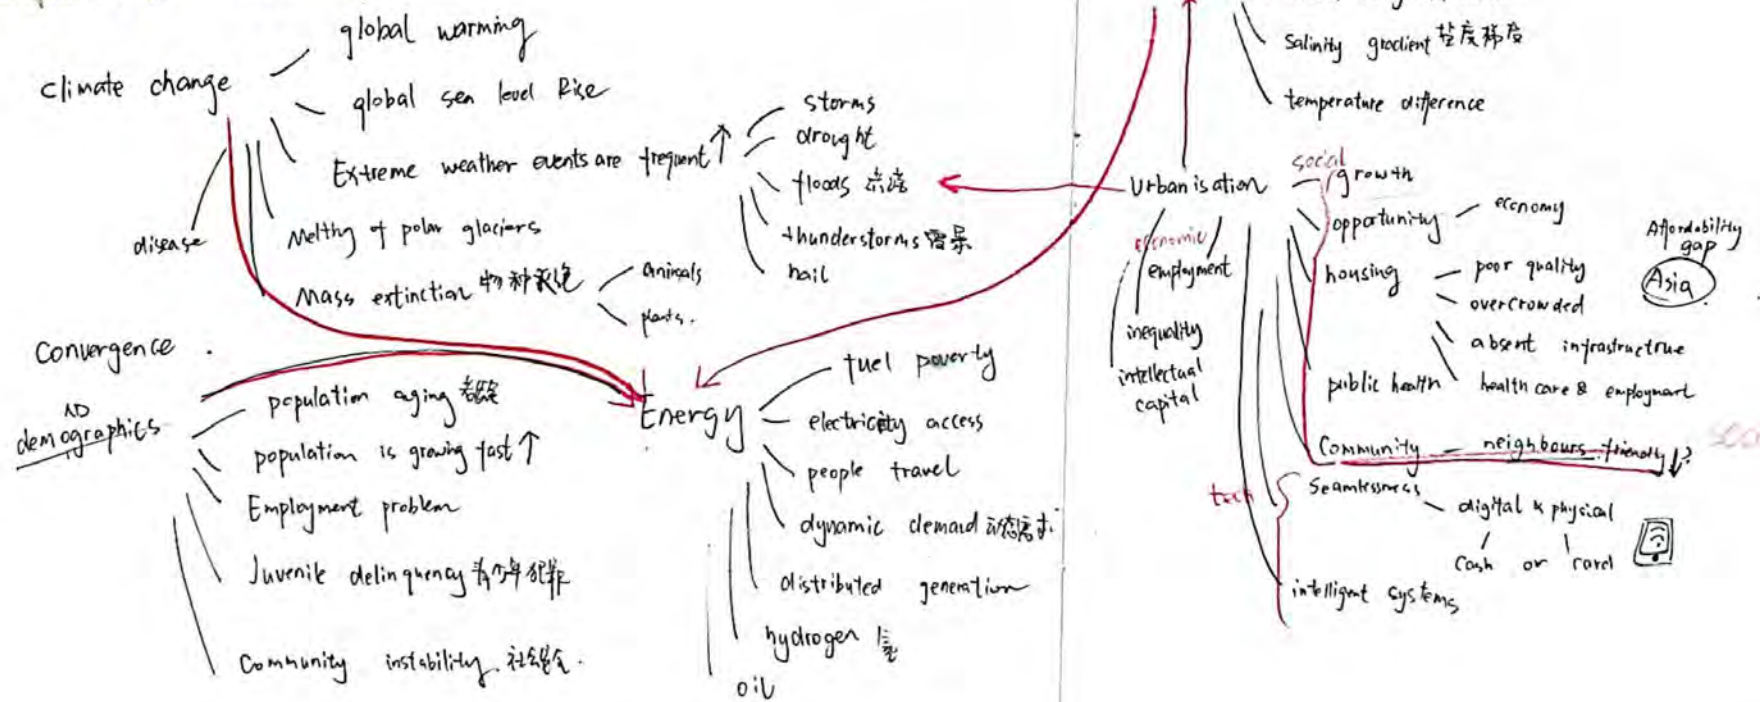 climate change
global warming
global sea level Rise
Extreme weather events are frequent ↑
storms
drought
floods
thunderstorms
hail
disease
Melting of polar glaciers
Mass extinction 物种灭绝
animals
plants.
Convergence
demographics
population aging
population is growing fast ↑
Employment problem
Juvenile delinquency 青少年犯罪
Community instability
Energy
fuel poverty
electricity access
people travel
dynamic demand 动态需求
distributed generation
hydrogen 氢
oil
Salinity gradient 盐度梯度
temperature difference
Urbanisation
social
growth
opportunity
economy
housing
poor quality
overcrowded
absent infrastructrue
public health
health care & employment
Affordability
gap
Asia
economic
employment
inequality
intellectual
capital
Community
neighbours friendly ↓?
tech
Seamlessness
digital & physical
Cash or card
intelligent systems